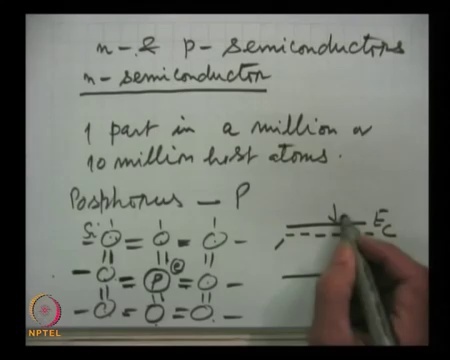 n- & p- semiconductors
n- semiconductor
1 part in a million or
10 million host atoms.
Posphorus - P
Si
P
e
Ec
NPTEL